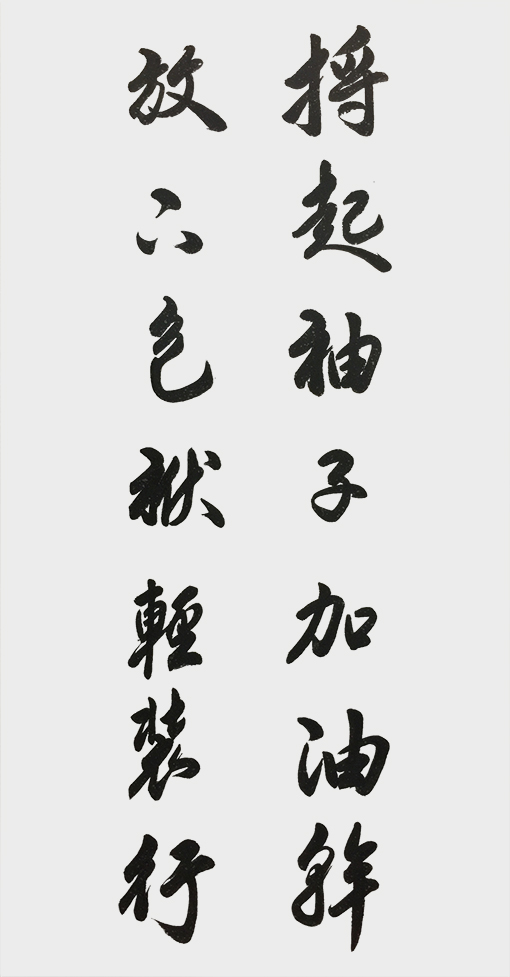 捋起袖子加油幹
放下包袱輕裝行